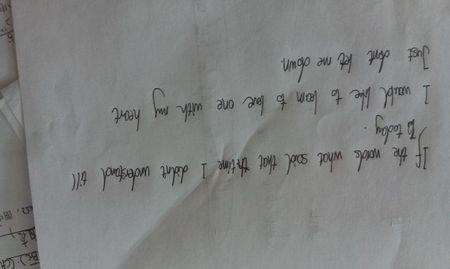 If the words what said that time I didn't understand till
To today.
I would like to learn to love one with my heart
Just don't let me down.